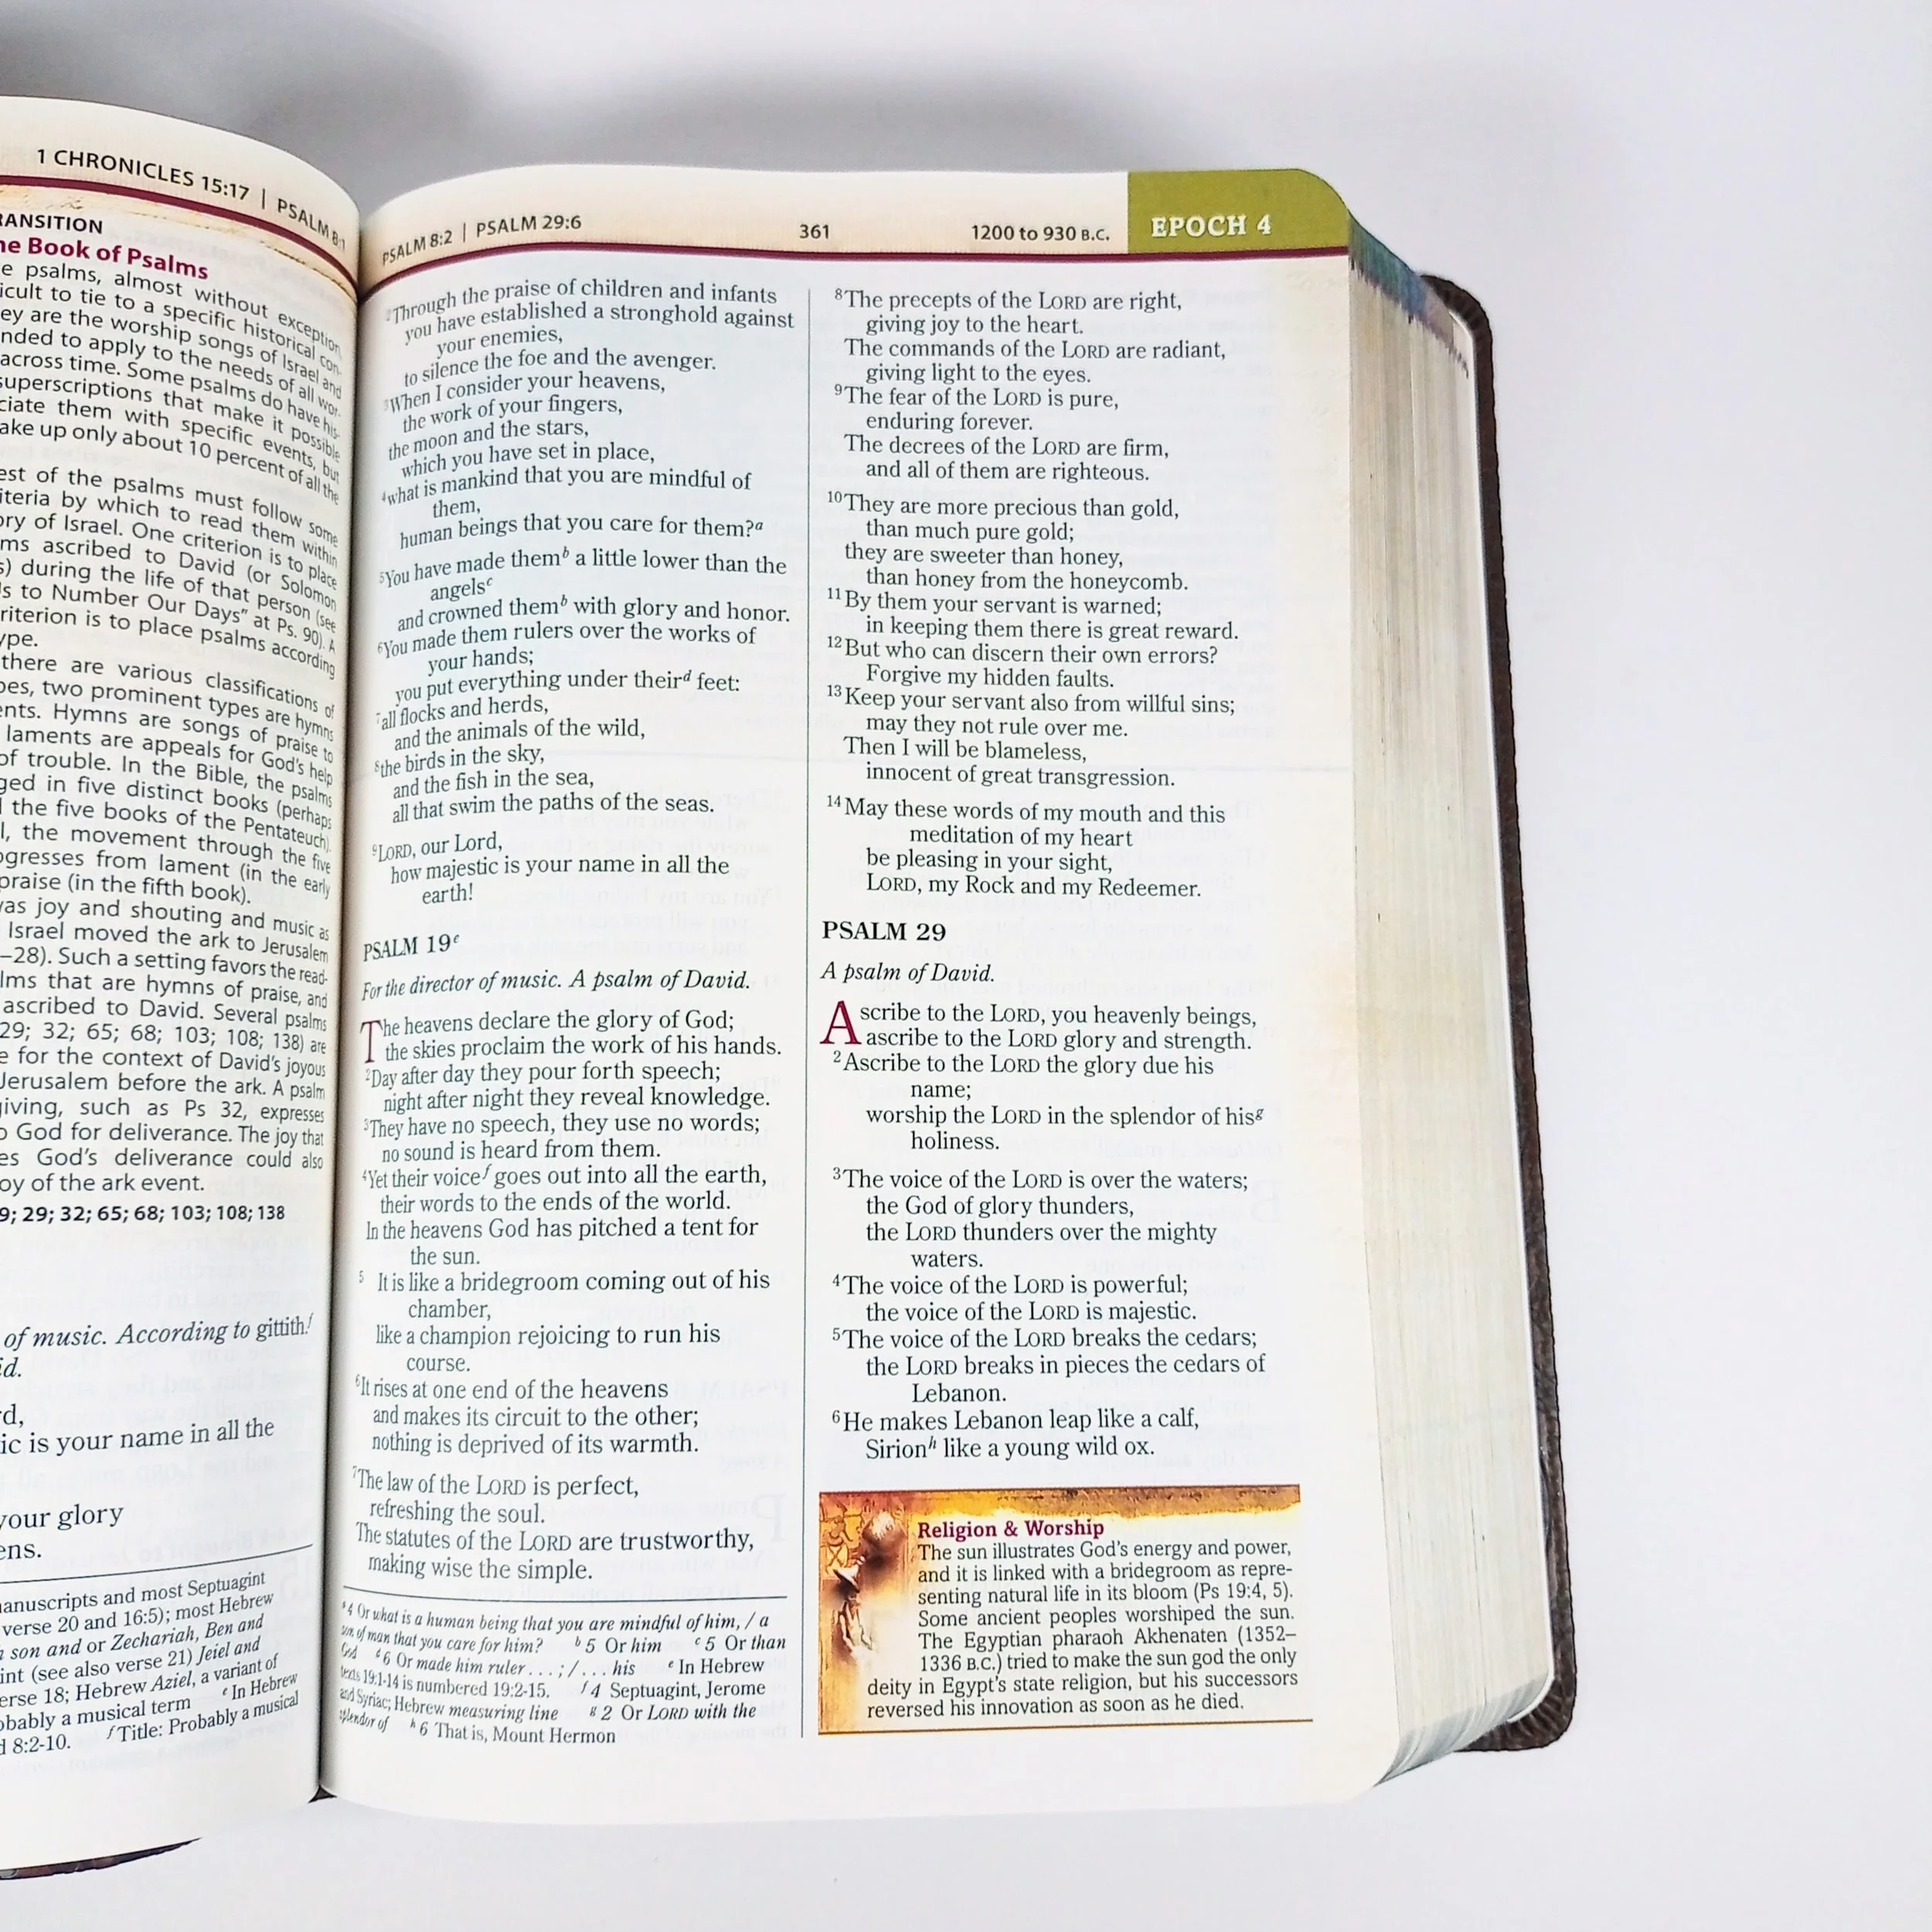 1 CHRONICLES 15:17 | PSALM 8:1
RANSITION
he Book of Psalms
e psalms, almost without exception,
icult to tie to a specific historical con-
ey are the worship songs of Israel and
nded to apply to the needs of all wor-
across time. Some psalms do have his-
superscriptions that make it possible
ciate them with specific events, but
ake up only about 10 percent of all the
est of the psalms must follow some
iteria by which to read them within
ory of Israel. One criterion is to place
ms ascribed to David (or Solomon
s) during the life of that person (see
ls to Number Our Days" at Ps. 90). A
riterion is to place psalms according
ype.
there are various classifications of
pes, two prominent types are hymns
ents. Hymns are songs of praise to
laments are appeals for God's help
of trouble. In the Bible, the psalms
ged in five distinct books (perhaps
l the five books of the Pentateuch).
l, the movement through the five
ogresses from lament (in the early
praise (in the fifth book).
was joy and shouting and music as
Israel moved the ark to Jerusalem
–28). Such a setting favors the read-
lms that are hymns of praise, and
ascribed to David. Several psalms
29; 32; 65; 68; 103; 108; 138) are
e for the context of David's joyous
Jerusalem before the ark. A psalm
giving, such as Ps 32, expresses
o God for deliverance. The joy that
es God's deliverance could also
oy of the ark event.
9; 29; 32; 65; 68; 103; 108; 138
of music. According to gittith.f
id.
d,
ic is your name in all the
your glory
ens.
anuscripts and most Septuagint
verse 20 and 16:5); most Hebrew
h son and or Zechariah, Ben and
int (see also verse 21) Jeiel and
erse 18; Hebrew Aziel, a variant of
obably a musical term e In Hebrew
d 8:2-10. f Title: Probably a musical
PSALM 8:2 | PSALM 29:6 361 1200 to 930 B.C. EPOCH 4
2Through the praise of children and infants
you have established a stronghold against
your enemies,
to silence the foe and the avenger.
3When I consider your heavens,
the work of your fingers,
the moon and the stars,
which you have set in place,
4what is mankind that you are mindful of
them,
human beings that you care for them?a
5You have made themb a little lower than the
angelsc
and crowned themb with glory and honor.
6You made them rulers over the works of
your hands;
you put everything under theird feet:
7all flocks and herds,
and the animals of the wild,
8the birds in the sky,
and the fish in the sea,
all that swim the paths of the seas.
9LORD, our Lord,
how majestic is your name in all the
earth!
PSALM 19e
For the director of music. A psalm of David.
The heavens declare the glory of God;
the skies proclaim the work of his hands.
2Day after day they pour forth speech;
night after night they reveal knowledge.
3They have no speech, they use no words;
no sound is heard from them.
4Yet their voicef goes out into all the earth,
their words to the ends of the world.
In the heavens God has pitched a tent for
the sun.
5 It is like a bridegroom coming out of his
chamber,
like a champion rejoicing to run his
course.
6It rises at one end of the heavens
and makes its circuit to the other;
nothing is deprived of its warmth.
7The law of the LORD is perfect,
refreshing the soul.
The statutes of the LORD are trustworthy,
making wise the simple.
a 4 Or what is a human being that you are mindful of him, / a
son of man that you care for him? b 5 Or him c 5 Or than
God d 6 Or made him ruler . . . ; / . . . his e In Hebrew
texts 19:1-14 is numbered 19:2-15. f 4 Septuagint, Jerome
and Syriac; Hebrew measuring line g 2 Or LORD with the
splendor of h 6 That is, Mount Hermon
8The precepts of the LORD are right,
giving joy to the heart.
The commands of the LORD are radiant,
giving light to the eyes.
9The fear of the LORD is pure,
enduring forever.
The decrees of the LORD are firm,
and all of them are righteous.
10They are more precious than gold,
than much pure gold;
they are sweeter than honey,
than honey from the honeycomb.
11By them your servant is warned;
in keeping them there is great reward.
12But who can discern their own errors?
Forgive my hidden faults.
13Keep your servant also from willful sins;
may they not rule over me.
Then I will be blameless,
innocent of great transgression.
14May these words of my mouth and this
meditation of my heart
be pleasing in your sight,
LORD, my Rock and my Redeemer.
PSALM 29
A psalm of David.
Ascribe to the LORD, you heavenly beings,
ascribe to the LORD glory and strength.
2Ascribe to the LORD the glory due his
name;
worship the LORD in the splendor of hisg
holiness.
3The voice of the LORD is over the waters;
the God of glory thunders,
the LORD thunders over the mighty
waters.
4The voice of the LORD is powerful;
the voice of the LORD is majestic.
5The voice of the LORD breaks the cedars;
the LORD breaks in pieces the cedars of
Lebanon.
6He makes Lebanon leap like a calf,
Sirionh like a young wild ox.
Religion & Worship
The sun illustrates God's energy and power,
and it is linked with a bridegroom as repre-
senting natural life in its bloom (Ps 19:4, 5).
Some ancient peoples worshiped the sun.
The Egyptian pharaoh Akhenaten (1352–
1336 B.C.) tried to make the sun god the only
deity in Egypt's state religion, but his successors
reversed his innovation as soon as he died.